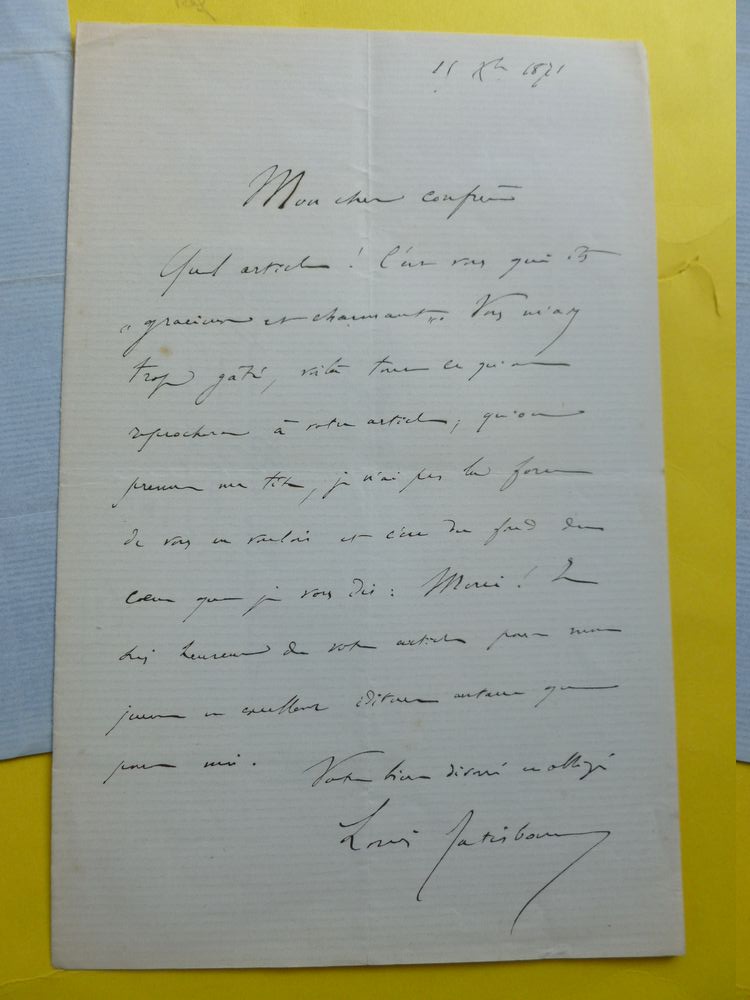 Xbre 1871
Mon cher confrère
Quel article ! C'est vous qui êtes
"gracieux et charmant". Vous m'avez
trop gâté, voilà tout ce qu'on
reprochera à votre article ; qu'on
prenne ma tête, je n'ai pas la force
de vous en vouloir et c'est du fond du
cœur que je vous dis : Merci ! Je
suis heureux de votre article pour mon
jeune et excellent éditeur autant que
pour moi.
Votre bien dévoué et obligé
Louis Ratisbonne